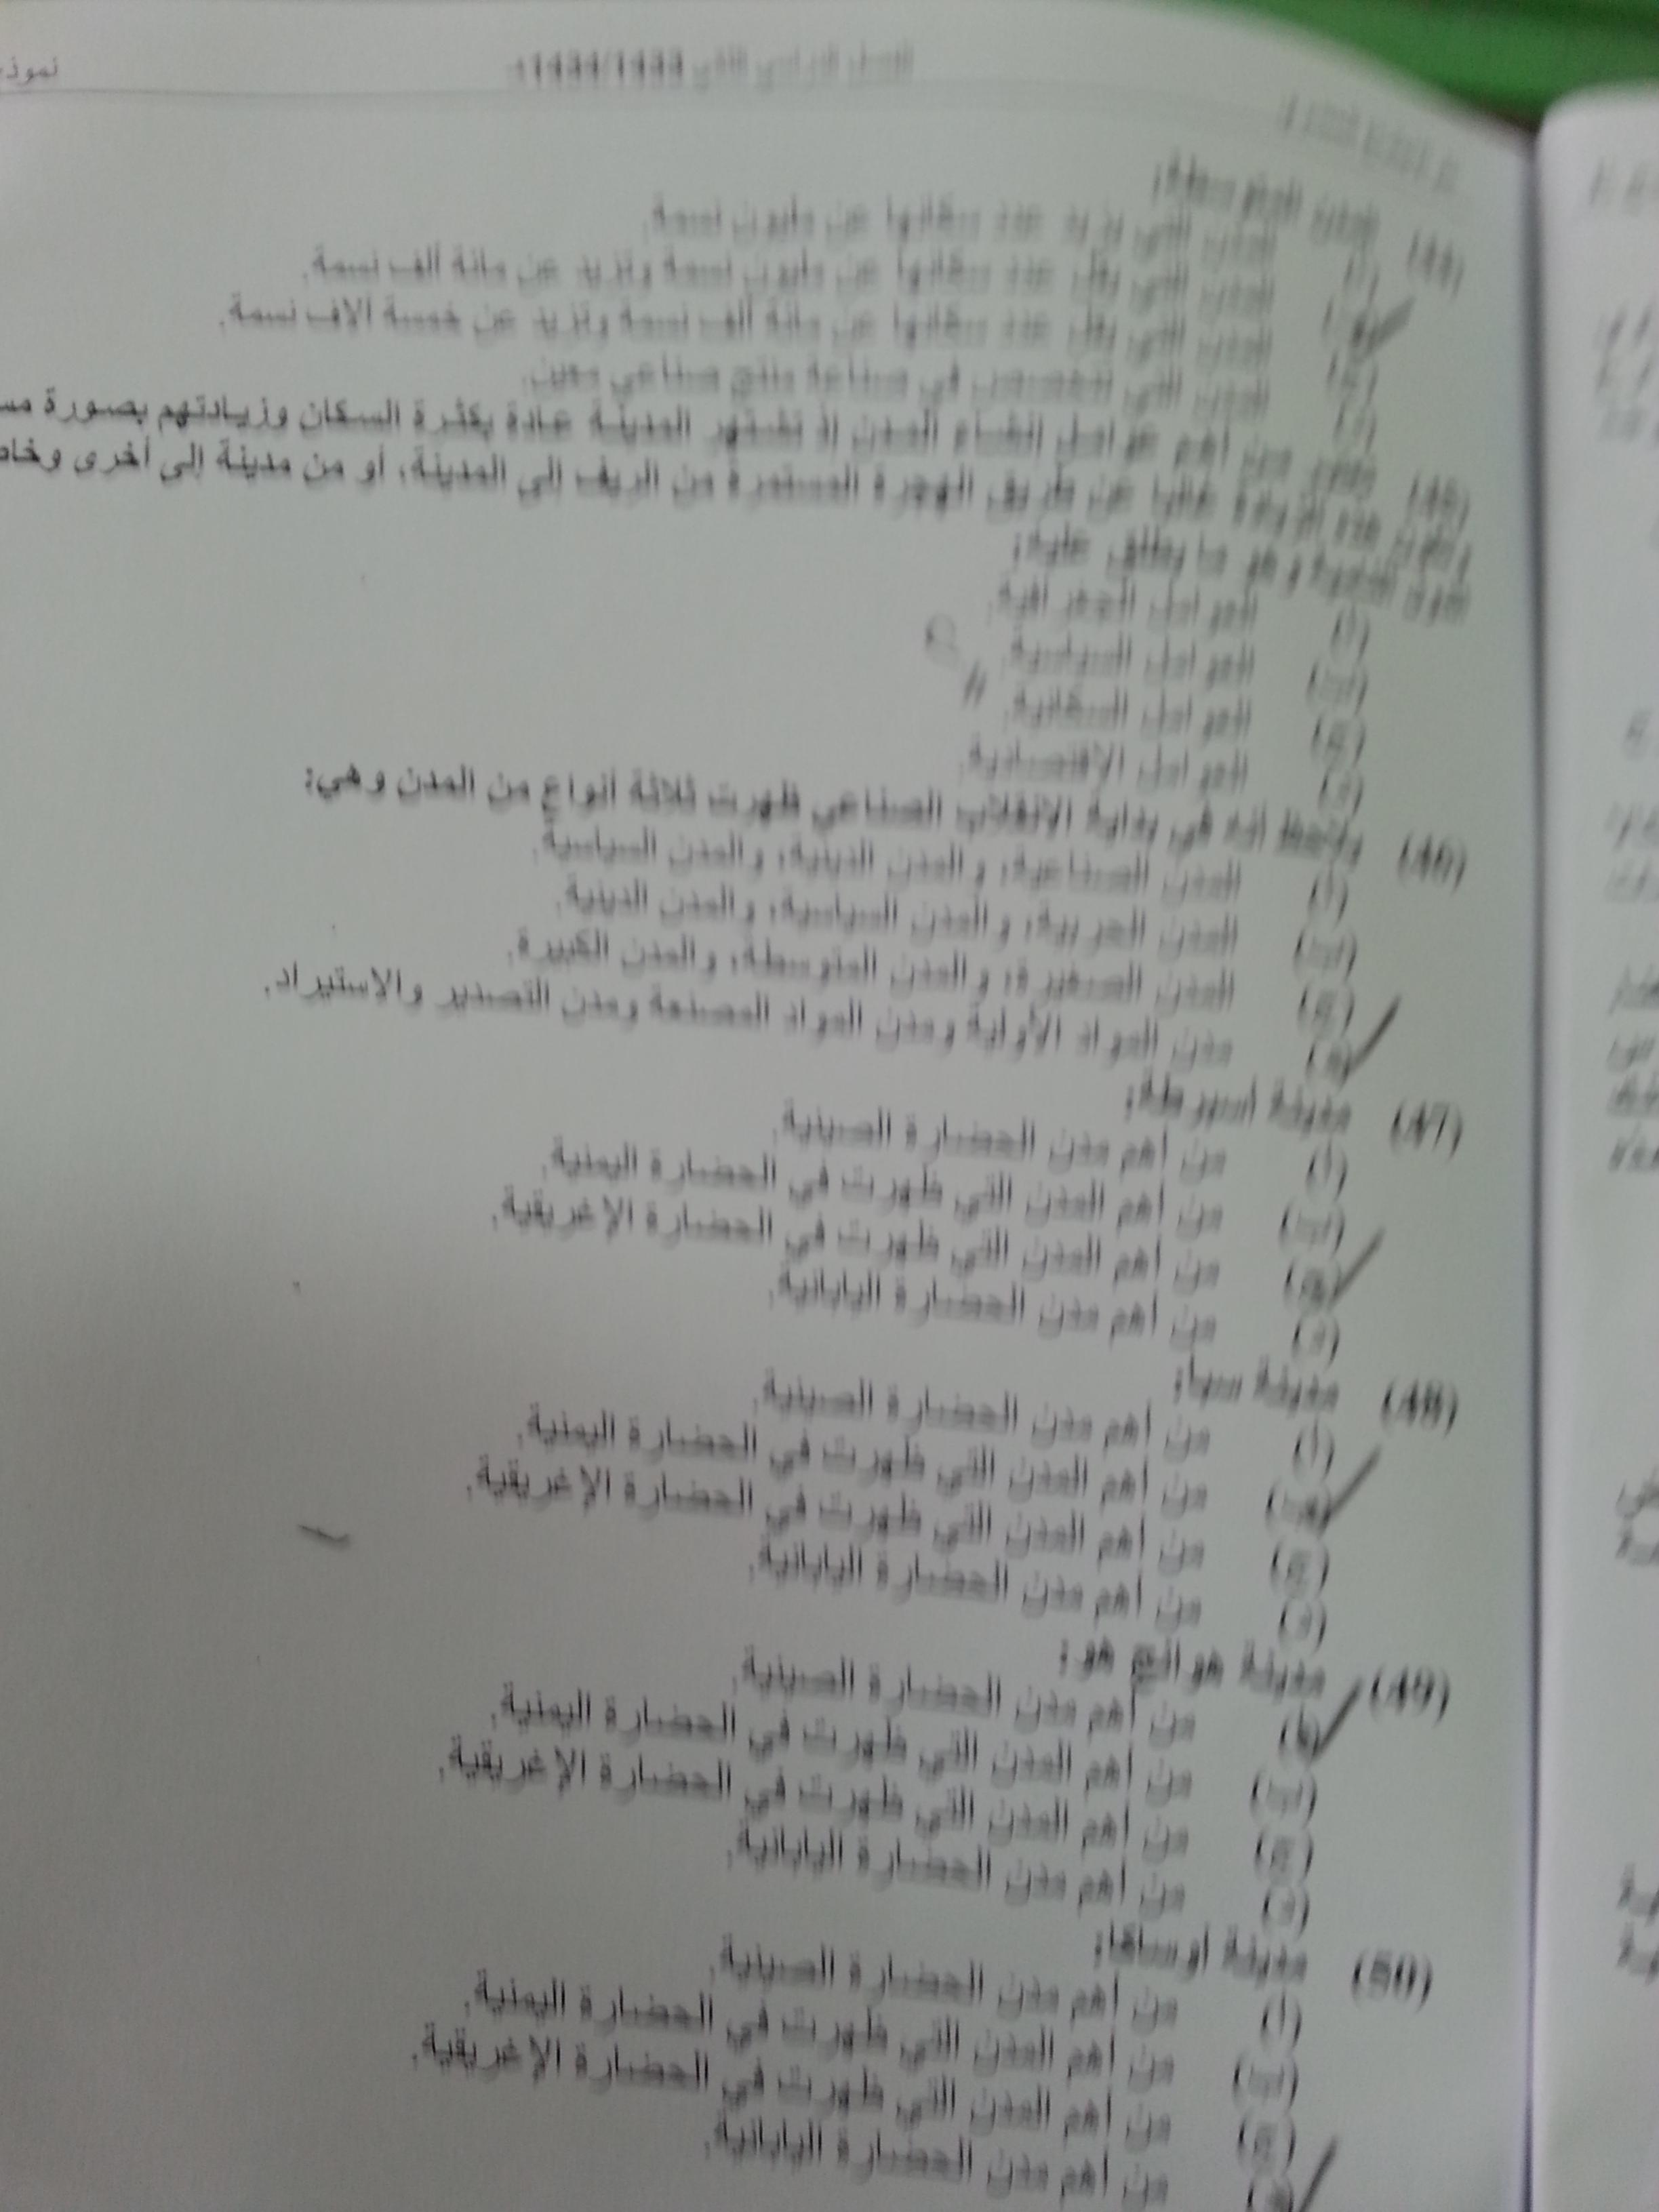 الفصل الدراسي الثاني 1434/1433
نموذ
(44) المدن المتوسطة:
(أ) المدن التي يزيد عدد سكانها عن مليون نسمة.
(ب) المدن التي يقل عدد سكانها عن مليون نسمة وتزيد عن مائة ألف نسمة.
(ج) المدن التي يقل عدد سكانها عن مائة ألف نسمة وتزيد عن خمسة آلاف نسمة.
(د) المدن التي تتخصص في صناعة منتج صناعي معين.
(45) من أهم عوامل إنشاء المدن إذ تشتهر المدينة عادة بكثرة السكان وزيادتهم بصورة مس
وتكون هذه الزيادة غالبا عن طريق الهجرة المستمرة من الريف إلى المدينة، أو من مدينة إلى أخرى وخاص
وهو ما يطلق عليه:
(أ) العوامل الجغرافية.
(ب) العوامل السياسية.
(ج) العوامل السكانية.
(د) العوامل الاقتصادية.
(46) ويلاحظ أنه في بداية الانقلاب الصناعي ظهرت ثلاثة أنواع من المدن وهي:
(أ) المدن الصناعية، والمدن الدينية، والمدن السياسية.
(ب) المدن الحربية، والمدن السياسية، والمدن الدينية.
(ج) المدن الصغيرة، والمدن المتوسطة، والمدن الكبيرة.
(د) مدن المواد الأولية ومدن المواد المصنعة ومدن التصدير والاستيراد.
(47) مدينة اسبرطة:
(أ) من أهم مدن الحضارة الصينية.
(ب) من أهم المدن التي ظهرت في الحضارة اليمنية.
(ج) من أهم المدن التي ظهرت في الحضارة الإغريقية.
(د) من أهم مدن الحضارة اليابانية.
(48) مدينة سبأ:
(أ) من أهم مدن الحضارة الصينية.
(ب) من أهم المدن التي ظهرت في الحضارة اليمنية.
(ج) من أهم المدن التي ظهرت في الحضارة الإغريقية.
(د) من أهم مدن الحضارة اليابانية.
(49) مدينة هوانج هو:
(أ) من أهم مدن الحضارة الصينية.
(ب) من أهم المدن التي ظهرت في الحضارة اليمنية.
(ج) من أهم المدن التي ظهرت في الحضارة الإغريقية.
(د) من أهم مدن الحضارة اليابانية.
(50) مدينة اوساكا:
(أ) من أهم مدن الحضارة الصينية.
(ب) من أهم المدن التي ظهرت في الحضارة اليمنية.
(ج) من أهم المدن التي ظهرت في الحضارة الإغريقية.
(د) من أهم مدن الحضارة اليابانية.